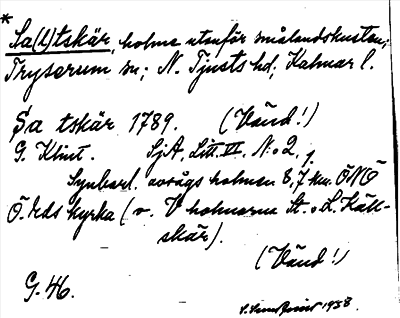 *
Sa(l)tskär, holme utanför smålandskusten;
Tryserum sn; N. Tjusts hd; Kalmar l.
Sa tskär 1789. (Vänd!)
G. Klint. SjA. Litt. VI. N:o 2,
Synbarl. avsågs holmen 8,7 km. ÖNÖ
Ö. Eds kyrka (v. V holmarna St. o L. Käll-
skär).
(Vänd!)
G. 46.
1958.